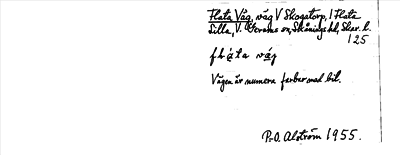 Flata Väg, väg V Skogatorp, i Flata
Silla, V. Gerums sn, Skånings hd, Skar. l.
125
flàta väg
Vägen är numera farbar med bil.
P. O. Alström 1955.